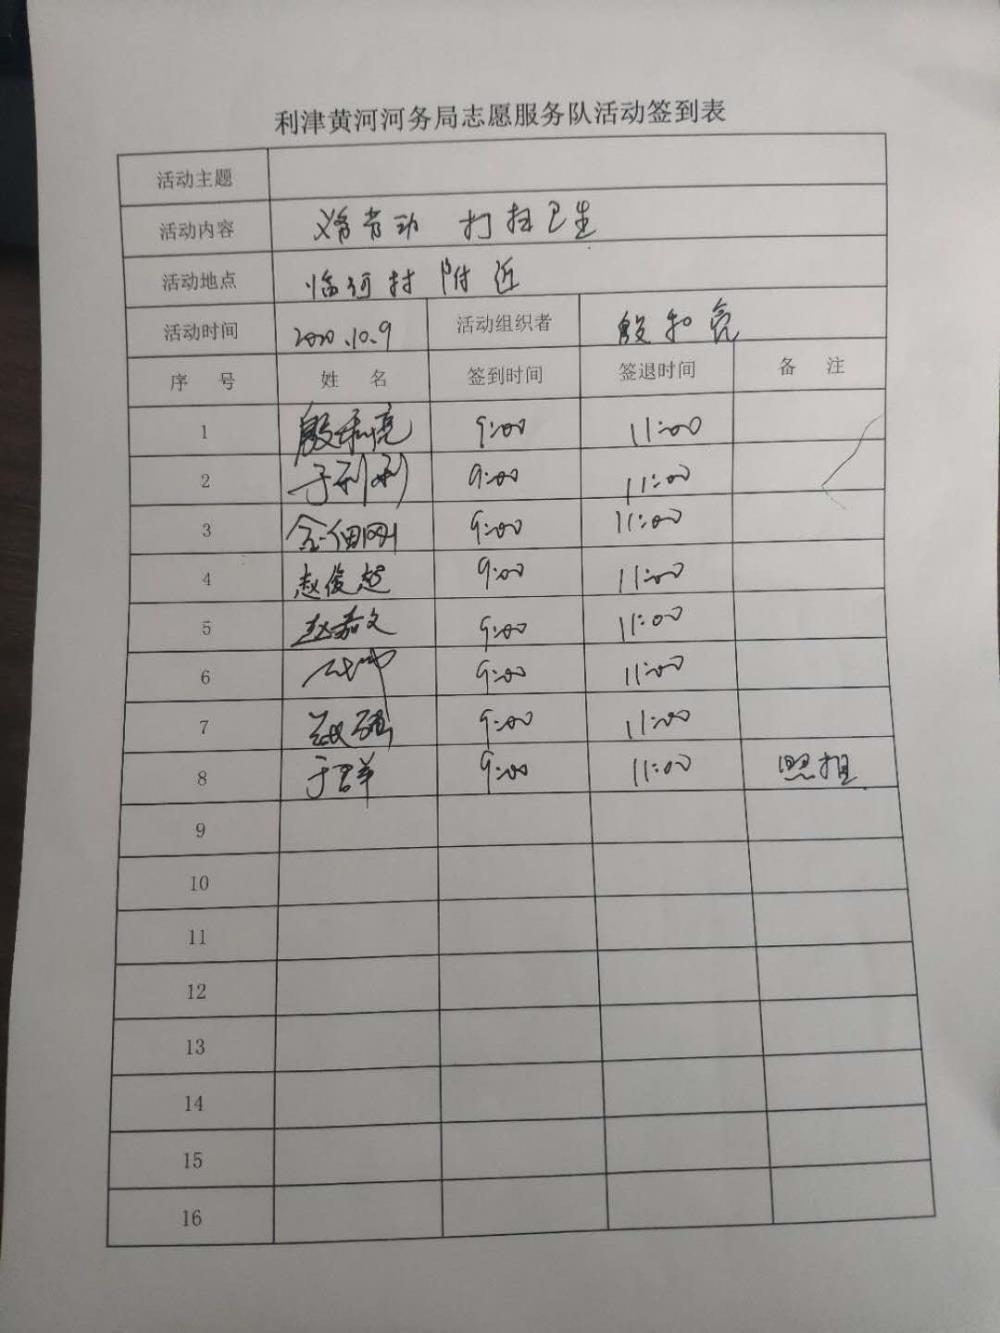 利津黄河河务局志愿服务队活动签到表
活动主题
活动内容 义务劳动 打扫卫生
活动地点 临河村附近
活动时间 2020.10.9 活动组织者 殷和亮
序 号 姓 名 签到时间 签退时间 备 注
1 殷和亮 9:00 11:00
2 于利利 9:00 11:00
3 9:00 11:00
4 赵俊超 9:00 11:00
5 赵嘉文 9:00 11:00
6 9:00 11:00
7 9:00 11:00
8 于君羊 9:00 11:00 照相
9
10
11
12
13
14
15
16